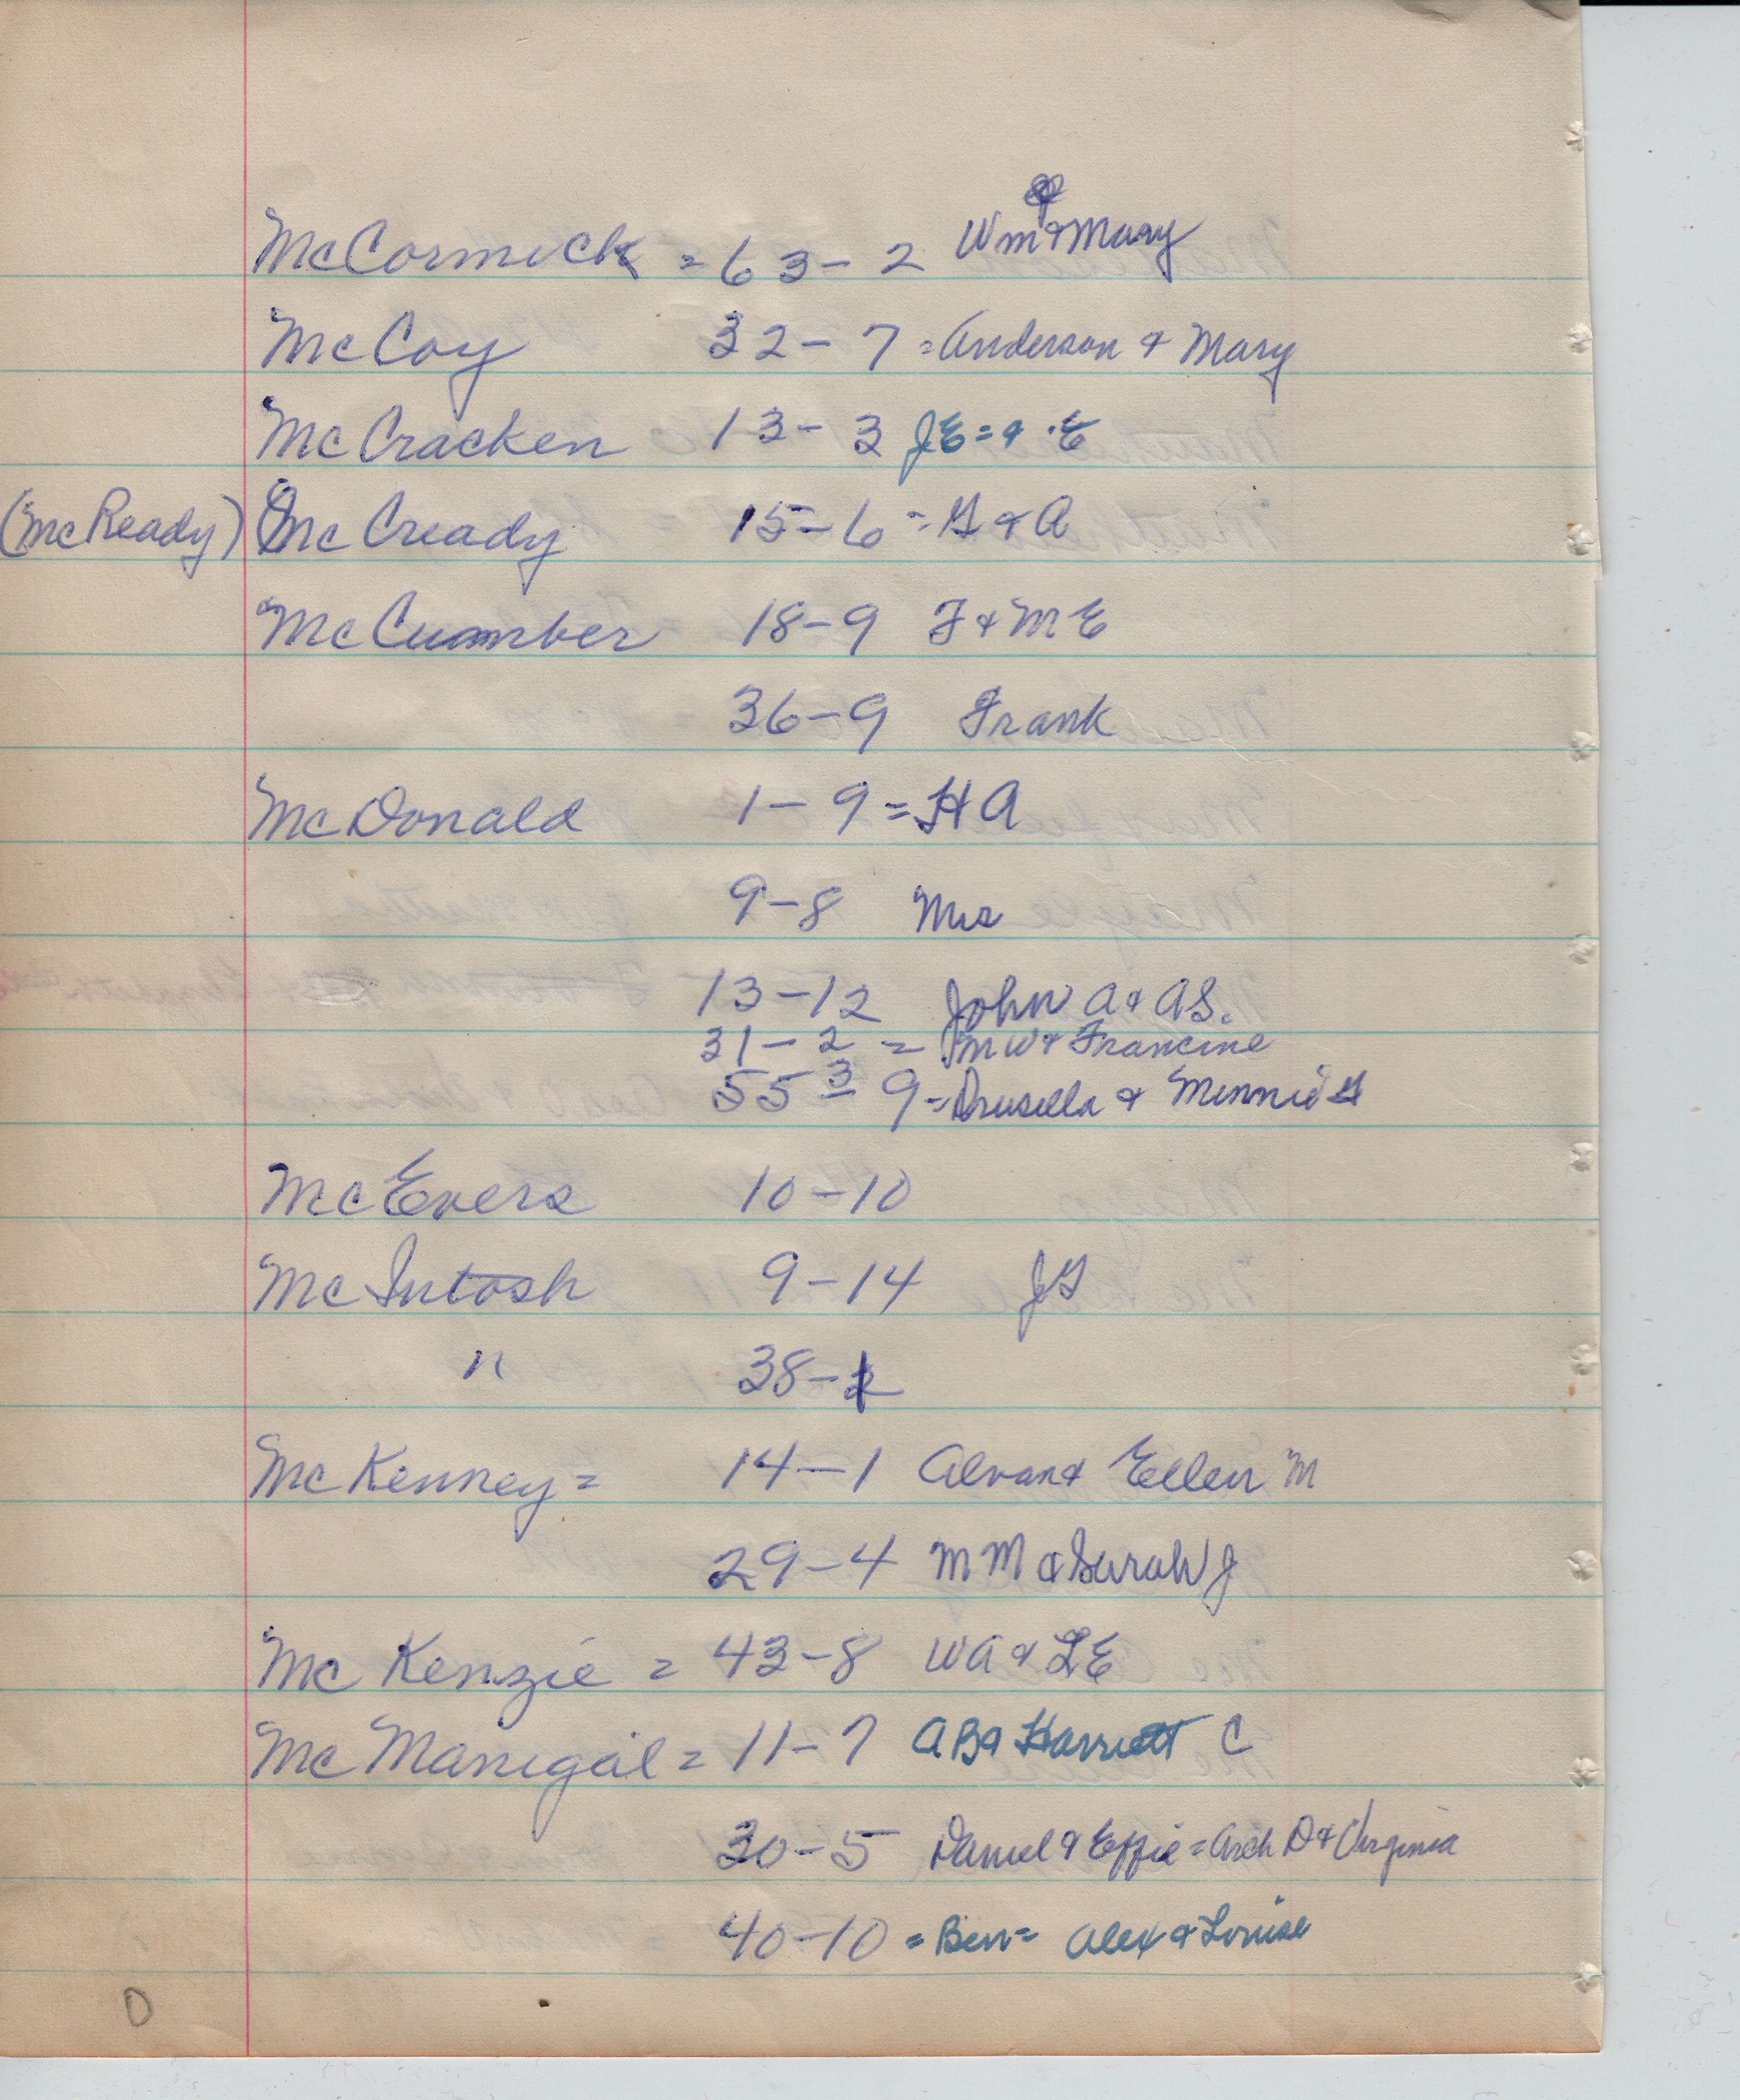 McCormick = 63 - 2 Wm & Mary
McCoy 32 - 7 = Anderson & Mary
McCracken 13 - 3 JE = & . E
(McReady) McCready 15 - 6 = G & A
McCumber 18 - 9 F & M E
36 - 9 Frank
McDonald 1 - 9 = H A
9 - 8 Mrs
13 - 12 John A & AS.
31 - 2 = M W & Francine
55 - 3 9 = Drusella & Minnie G
McEvers 10 - 10
McIntosh 9 - 14 JG
" 38 -
McKenney = 14 - 1 Alvan & Ellen M
29 - 4 M M & Sarah J
McKenzie = 43 - 8 WA & LE
McManigal = 11 - 7 A B & Harriett C
30 - 5 Daniel & Effie = Arch D & Virginia
40 - 10 = Ben = Alex & Louise
0